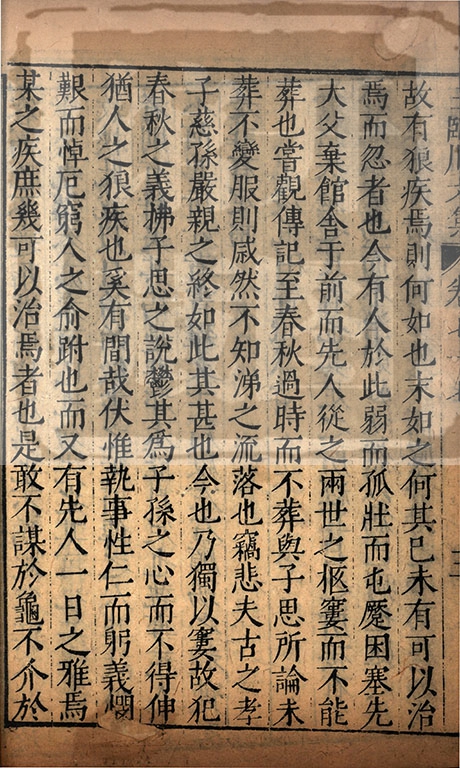 王臨川文集 卷七十
故有狼疾焉則何如也末如之何其已未有可以治
焉而忍者也今有人於此弱而孤壯而屯蹷困塞先
大父棄館舍于前而先人從之兩世之柩窶而不能
葬也嘗觀傳記至春秋過時而不葬與子思所論未
葬不變服則戚然不知涕之流落也竊悲夫古之孝
子慈孫嚴親之終如此其甚也今也乃獨以窶故犯
春秋之義拂子思之說鬱其為子孫之心而不得伸
猶人之狼疾也奚有間哉伏惟執事性仁而躬義憫
艱而悼厄窮人之俞跗也而又有先人一日之雅焉
某之疾庶幾可以治焉者也是敢不謀於龜不介於